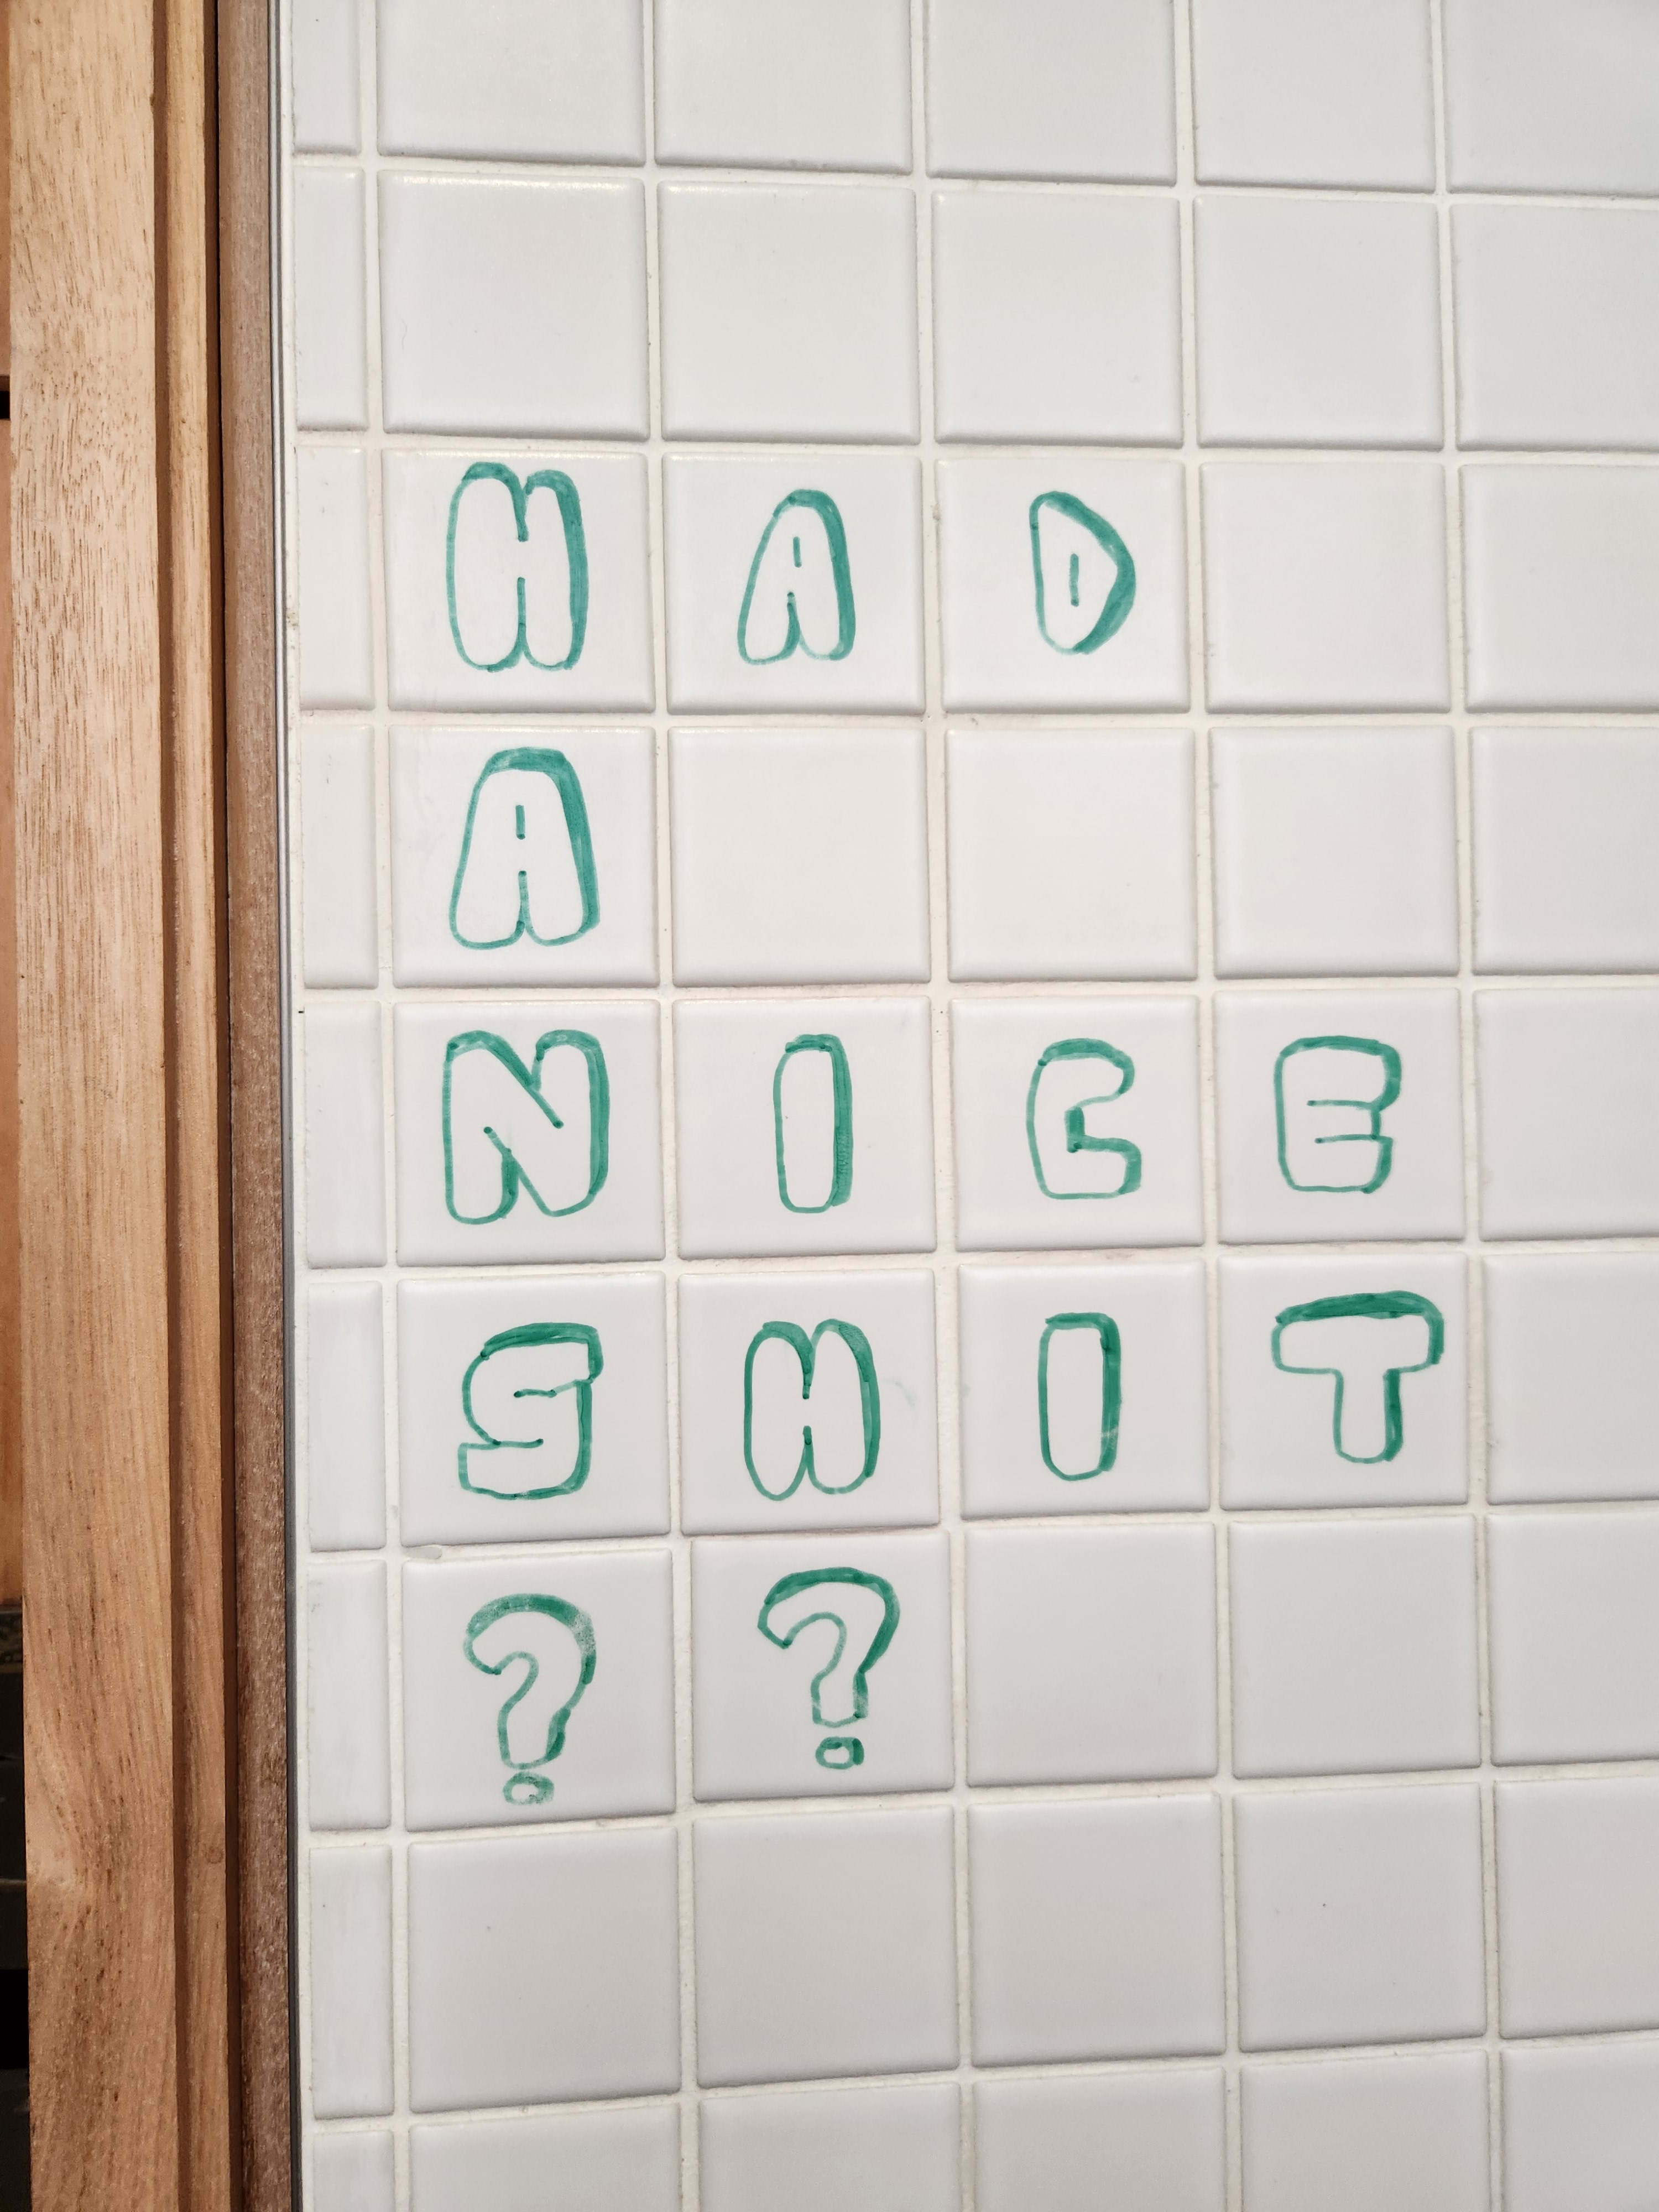 HAD
A
NICE
SHIT
??